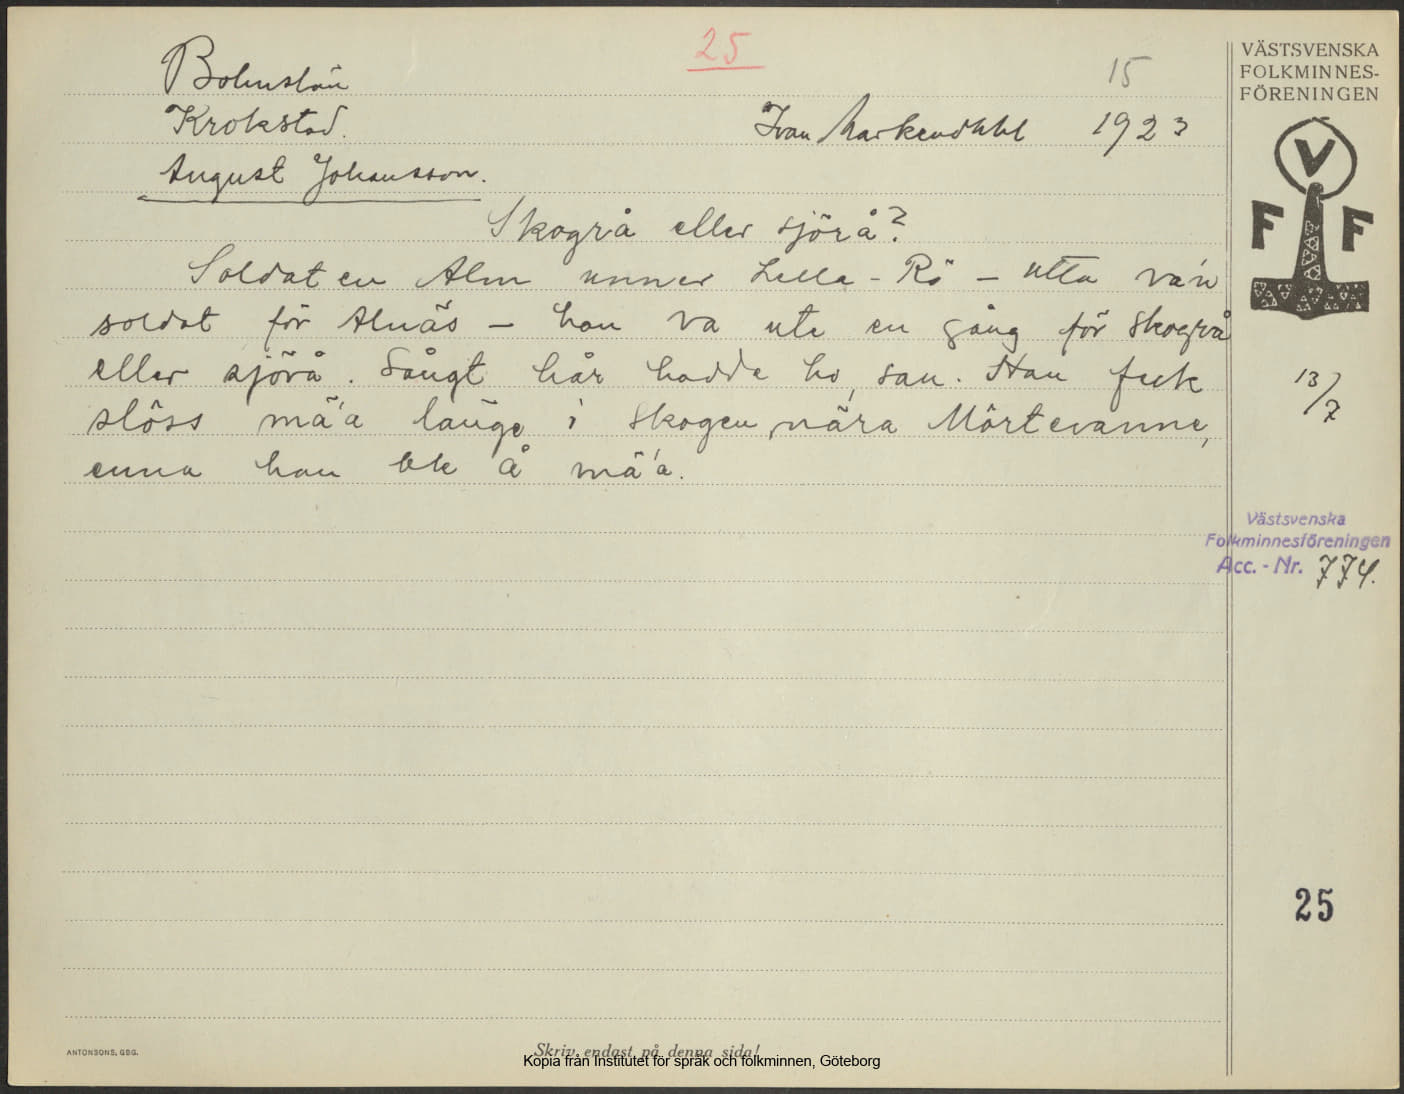 25
Bohuslän
15
Krokstad.
Ivan Markendahl 1923
August Johansson.
Skogrå eller sjörå?
Soldaten Alm unner Lella-Rö – utta va'n
soldat för Alnäs – han va ute en gång för skogrå
eller sjörå. Sångt hår hadde ho, san. Han fick
slöss mä'a länge i skogen, nära Mörtevanne,
enna han ble å mä'a.
VÄSTSVENSKA
FOLKMINNES-
FÖRENINGEN
V
F F
13/7
Västsvenska
Folkminnesföreningen
Acc.-Nr. 774.
25
ANTONSONS, GBG.
Skriv endast på denna sida!
Kopia från Institutet för språk och folkminnen, Göteborg